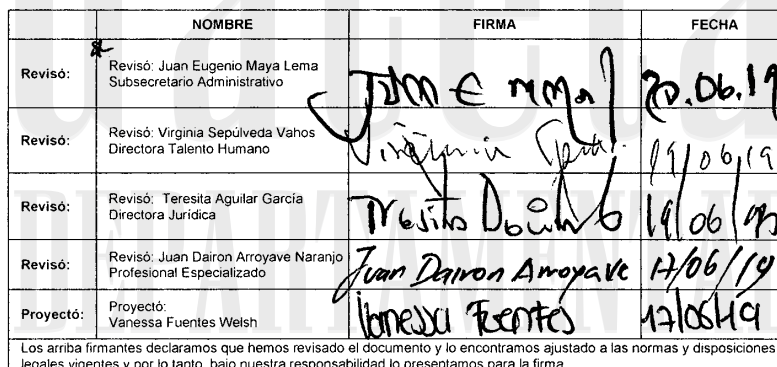 NOMBRE FIRMA FECHA
Revisó: Revisó: Juan Eugenio Maya Lema
Subsecretario Administrativo
20.06.19
Revisó: Revisó: Virginia Sepúlveda Vahos
Directora Talento Humano
Virginia
19/06/19
Revisó: Revisó: Teresita Aguilar García
Directora Jurídica
19/06
Revisó: Revisó: Juan Dairon Arroyave Naranjo
Profesional Especializado
Juan Dairon Arroyave 17/06/19
Proyectó: Proyectó:
Vanessa Fuentes Welsh
Vanessa Fuentes 17/06/19
Los arriba firmantes declaramos que hemos revisado el documento y lo encontramos ajustado a las normas y disposiciones
legales vigentes y por lo tanto, bajo nuestra responsabilidad lo presentamos para la firma